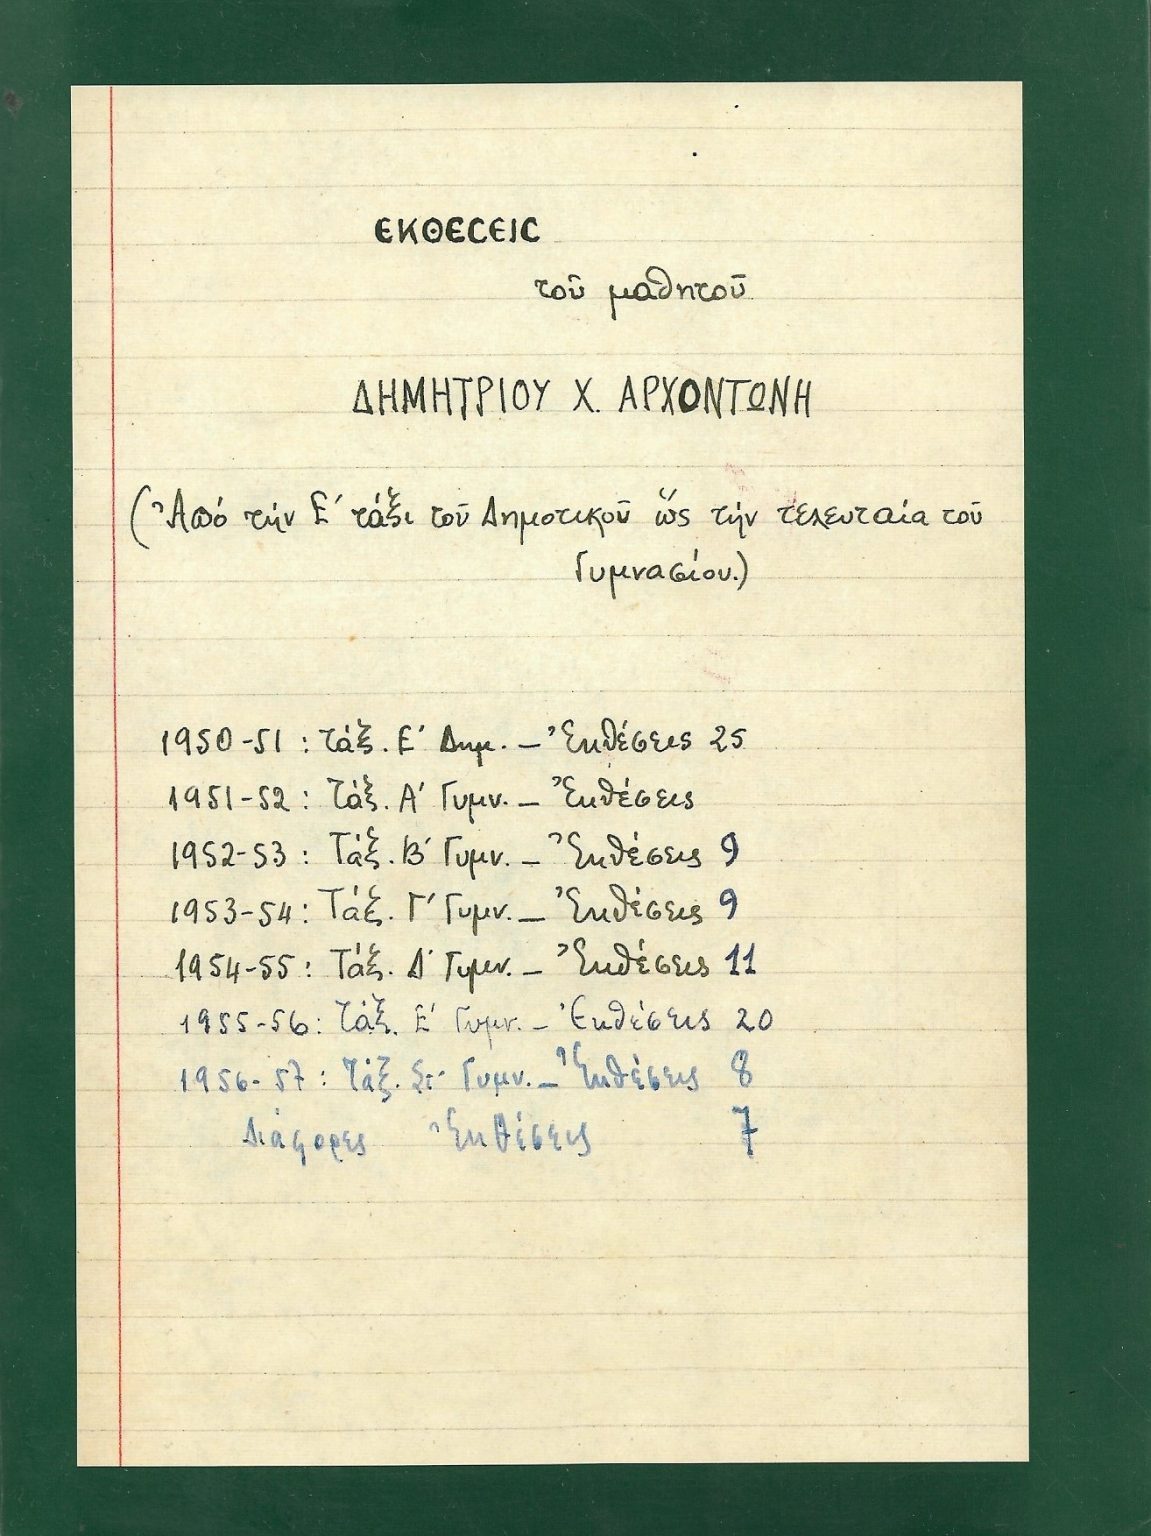 ΕΚΘΕCΕΙC
τοῦ μαθητοῦ
ΔΗΜΗΤΡΙΟΥ Χ. ΑΡΧΟΝΤΩΝΗ
(Ἀπό τήν Ε΄ τάξι τοῦ Δημοτικοῦ ὥς τήν τελευταία τοῦ
Γυμνασίου.)
1950-51 : τάξ. Ε΄ Δημ. – Ἐκθέσεις 25
1951-52 : Τάξ. Α΄ Γυμν. – Ἐκθέσεις
1952-53 : Τάξ. Β΄ Γυμν. – Ἐκθέσεις 9
1953-54 : Τάξ. Γ΄ Γυμν. – Ἐκθέσεις 9
1954-55 : Τάξ. Δ΄ Γυμν. – Ἐκθέσεις 11
1955-56 : Τάξ. Ε΄ Γυμν. – Ἐκθέσεις 20
1956-57 : Τάξ. Στ΄ Γυμν. – Ἐκθέσεις 8
Διάφορες Ἐκθέσεις 7